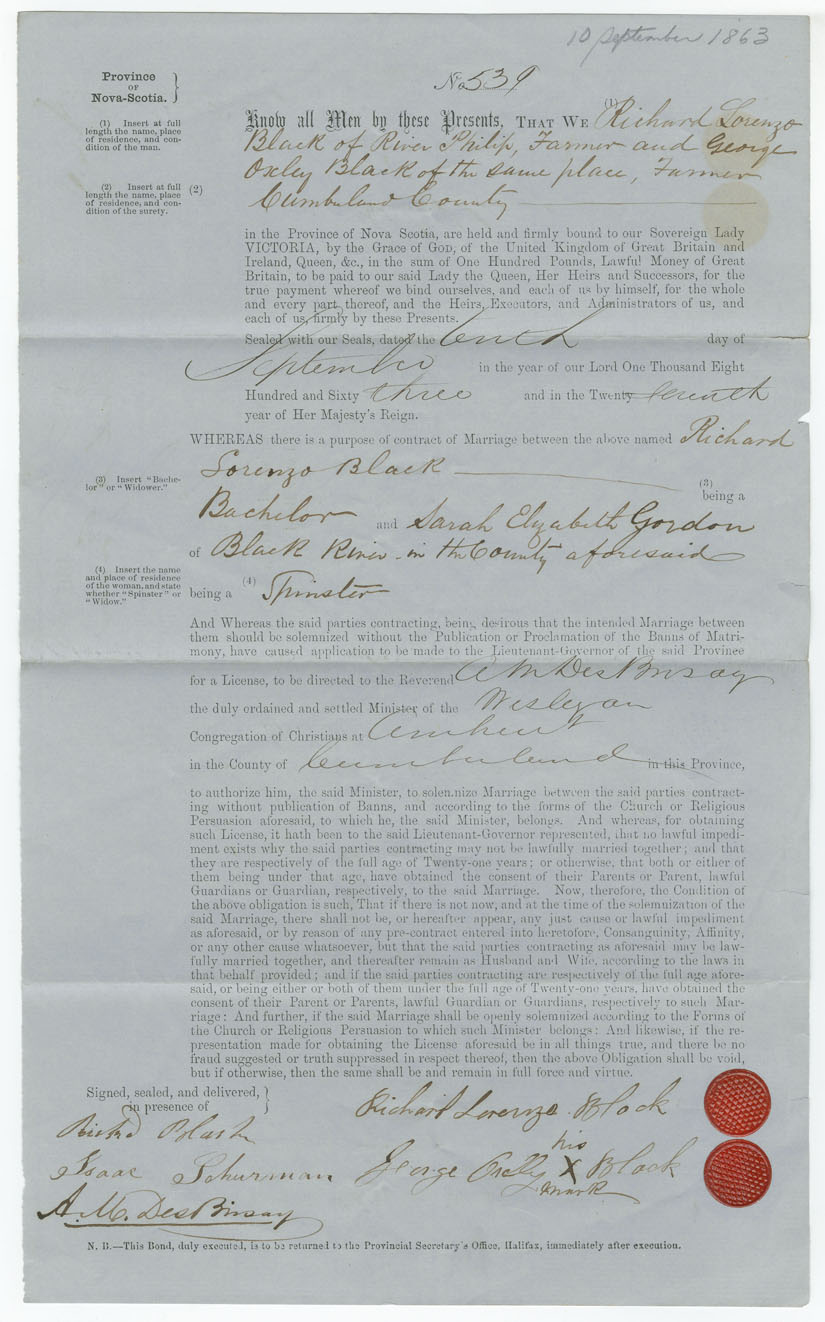 10 September 1863
Province
OF
Nova-Scotia.
No 539
(1) Insert at full
length the name, place
of residence, and con-
dition of the man.
(2) Insert at full
length the name, place
of residence, and con-
dition of the surety.
Know all Men by these Presents, THAT WE (1) Richard Lorenzo
Black of River Philip, Farmer and George
Oxley Black of the same place, Farmer
(2)
Cumberland County
in the Province of Nova Scotia, are held and firmly bound to our Sovereign Lady
VICTORIA, by the Grace of GOD, of the United Kingdom of Great Britain and
Ireland, Queen, &c., in the sum of One Hundred Pounds, Lawful Money of Great
Britain, to be paid to our said Lady the Queen, Her Heirs and Successors, for the
true payment whereof we bind ourselves, and each of us by himself, for the whole
and every part thereof, and the Heirs, Executors, and Administrators of us, and
each of us, firmly by these Presents.
Sealed with our Seals, dated the tenth day of
September in the year of our Lord One Thousand Eight
Hundred and Sixty three and in the Twenty seventh
year of Her Majesty's Reign.
WHEREAS there is a purpose of contract of Marriage between the above named Richard
Lorenzo Black
(3) Insert "Bache-
lor" or "Widower."
(3)
being a
Bachelor and Sarah Elizabeth Gordon
of Black River in the County aforesaid
(4) Insert the name
and place of residence
of the woman, and state
whether "Spinster" or
"Widow."
being a (4) Spinster
And Whereas the said parties contracting, being desirous that the intended Marriage between
them should be solemnized without the Publication or Proclamation of the Banns of Matri-
mony, have caused application to be made to the Lieutenant-Governor of the said Province
for a License, to be directed to the Reverend A M DesBrisay
the duly ordained and settled Minister of the Wesleyan
Congregation of Christians at Amherst
in the County of Cumberland in this Province,
to authorize him, the said Minister, to solemnize Marriage between the said parties contract-
ing without publication of Banns, and according to the forms of the Church or Religious
Persuasion aforesaid, to which he, the said Minister, belongs. And whereas, for obtaining
such License, it hath been to the said Lieutenant-Governor represented, that no lawful impedi-
ment exists why the said parties contracting may not be lawfully married together; and that
they are respectively of the full age of Twenty-one years; or otherwise, that both or either of
them being under that age, have obtained the consent of their Parents or Parent, lawful
Guardians or Guardian, respectively, to the said Marriage. Now, therefore, the Condition of
the above obligation is such, That if there is not now, and at the time of the solemnization of the
said Marriage, there shall not be, or hereafter appear, any just cause or lawful impediment
as aforesaid, or by reason of any pre-contract entered into heretofore, Consanguinity, Affinity,
or any other cause whatsoever, but that the said parties contracting as aforesaid may be law-
fully married together, and thereafter remain as Husband and Wife, according to the laws in
that behalf provided; and if the said parties contracting are respectively of the full age afore-
said, or being either or both of them under the full age of Twenty-one years, have obtained the
consent of their Parent or Parents, lawful Guardian or Guardians, respectively to such Mar-
riage: And further, if the said Marriage shall be openly solemnized according to the Forms of
the Church or Religious Persuasion to which such Minister belongs: And likewise, if the re-
presentation made for obtaining the License aforesaid be in all things true, and there be no
fraud suggested or truth suppressed in respect thereof, then the above Obligation shall be void,
but if otherwise, then the same shall be and remain in full force and virtue.
Signed, sealed, and delivered,
in presence of
Richard Lorenzo Black
Isaac Schurman
George Oxley his X mark Black
A. M. DesBrisay
N. B.—This Bond, duly executed, is to be returned to the Provincial Secretary's Office, Halifax, immediately after execution.